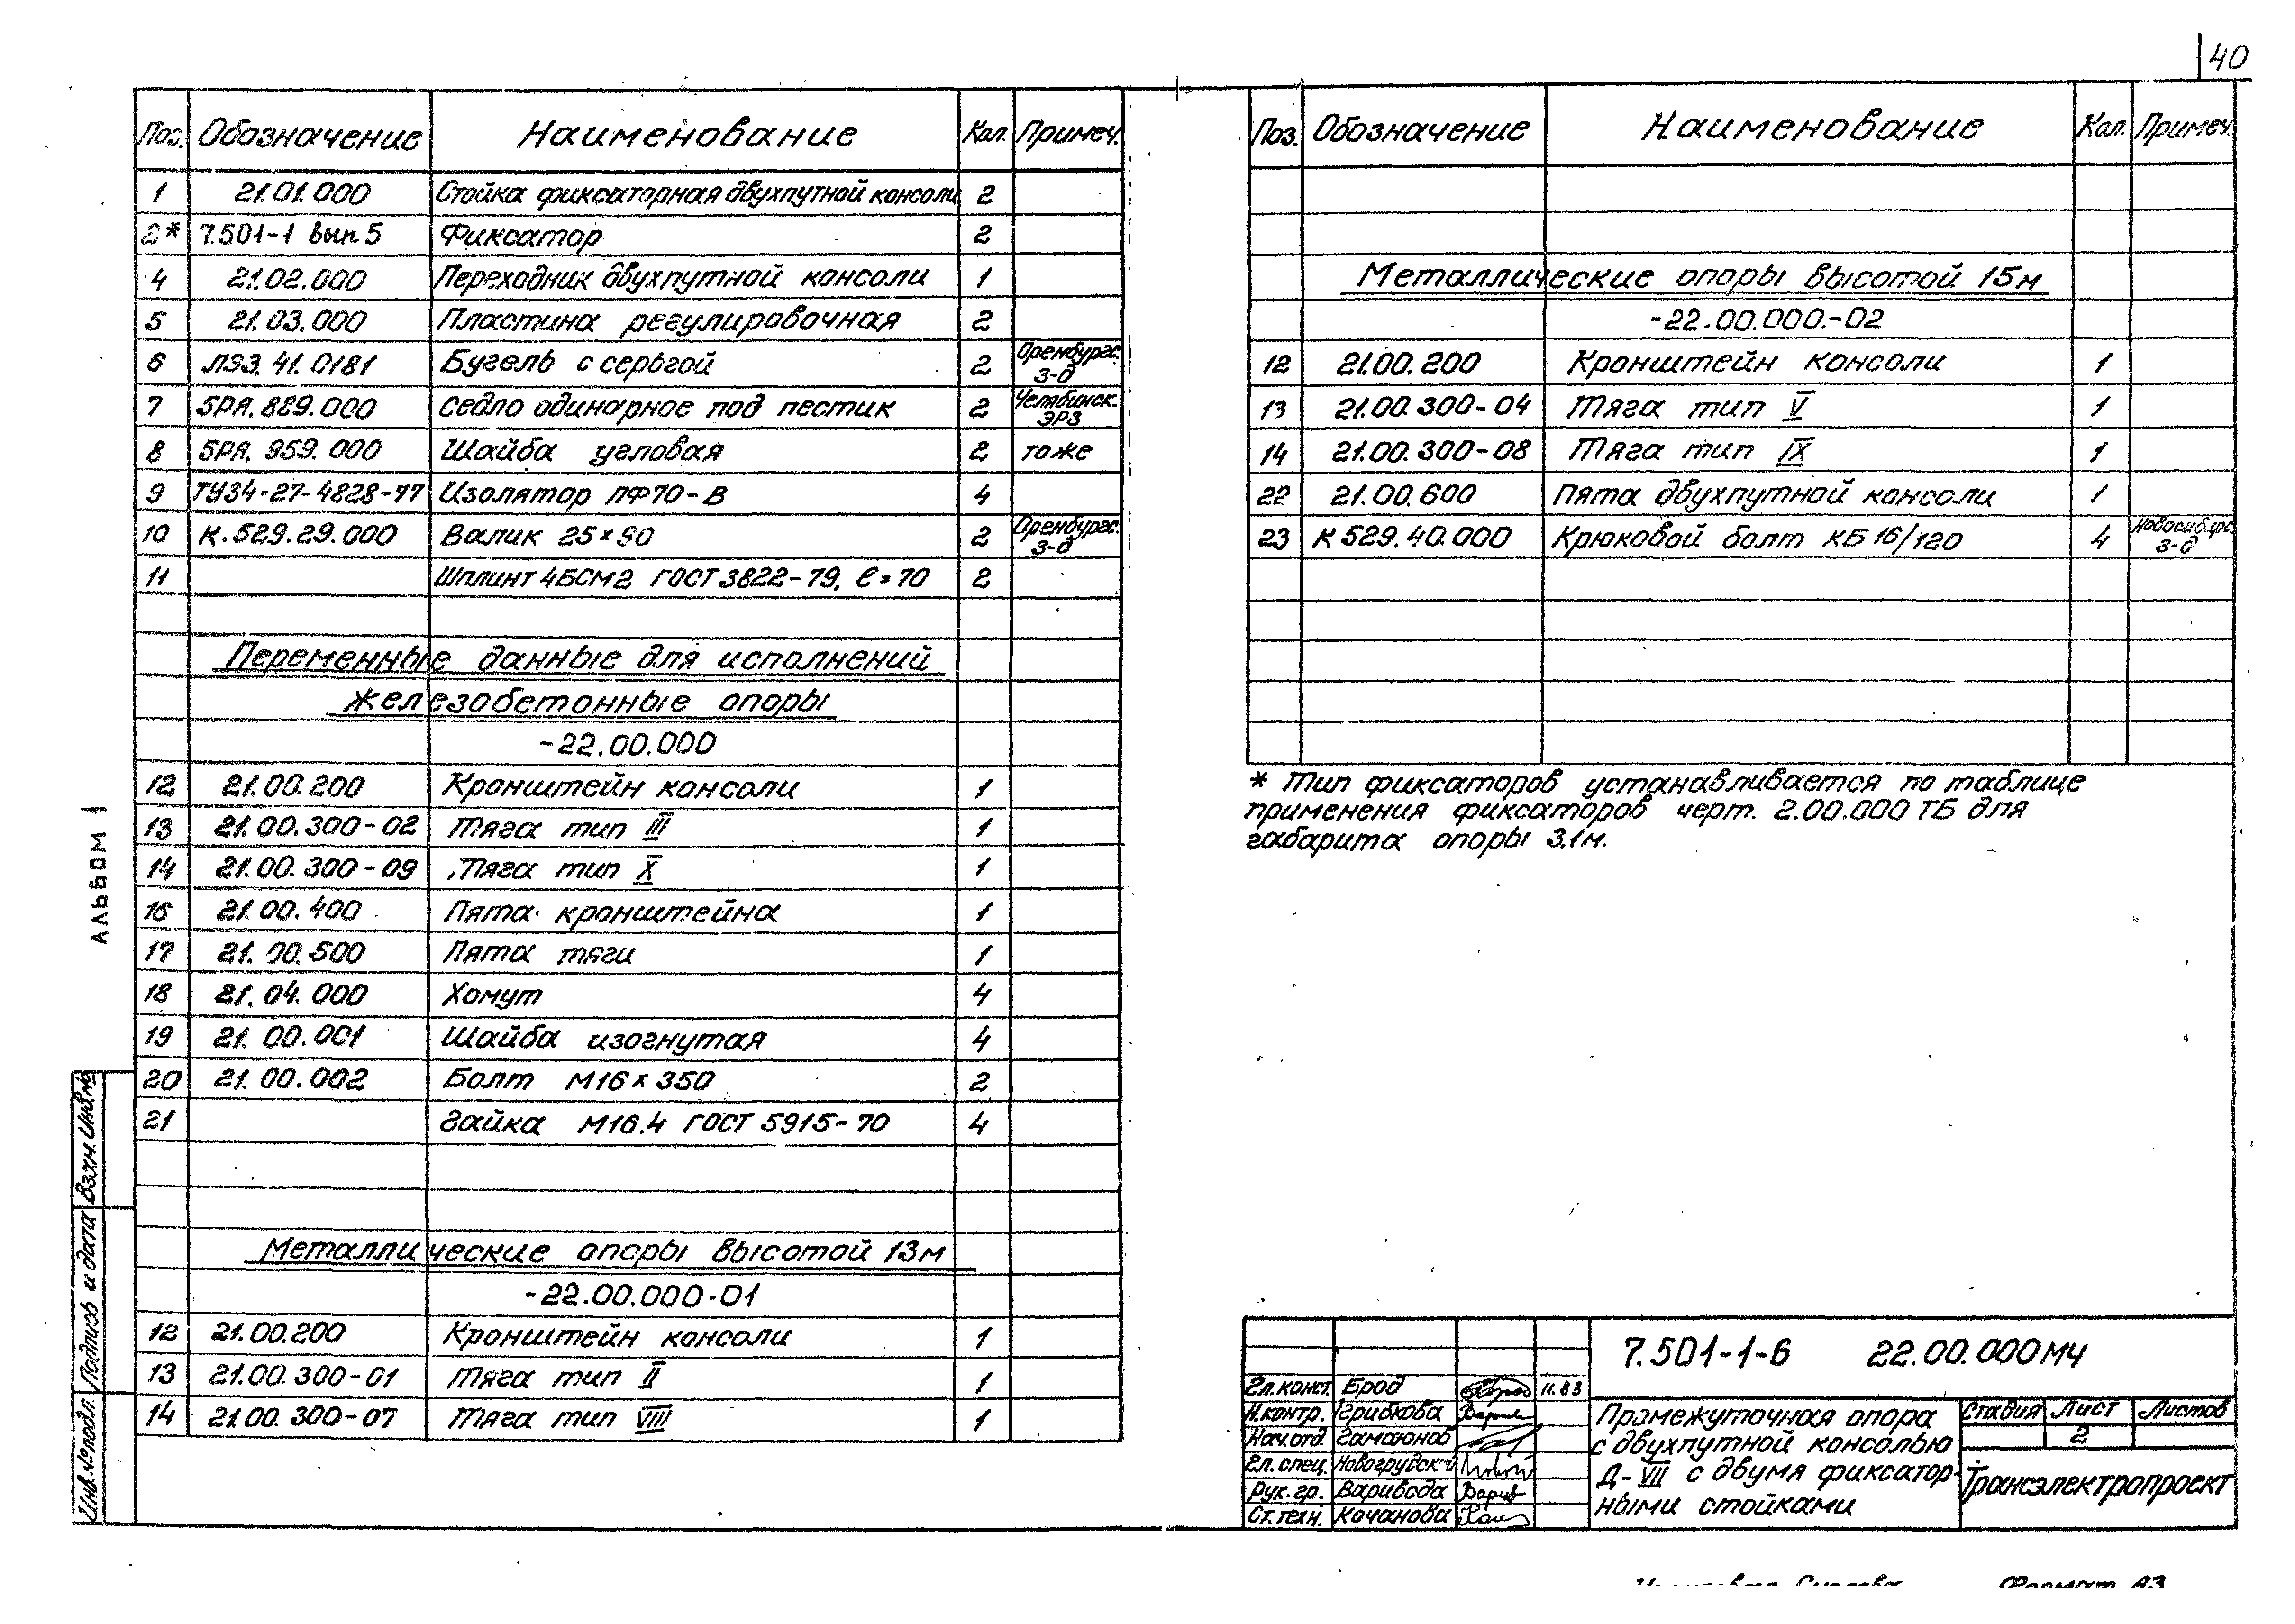 40
Поз. Обозначение Наименование Кол. Примеч.
1 21.01.000 Стойка фиксаторная двухпутной консоли 2
2* 7.501-1 вып.5 Фиксатор 2
4 21.02.000 Переходник двухпутной консоли 1
5 21.03.000 Пластина регулировочная 2
6 ЛЭЗ.41.0181 Бугель с серьгой 2 Оренбургс. з-д
7 5РЯ.889.000 Седло одинарное под пестик 2 Челябинск. ЭРЗ
8 5РЯ.959.000 Шайба угловая 2 тоже
9 ТУ34-27-4828-77 Изолятор ПФ70-В 4
10 К.529.29.000 Валик 25×90 2 Оренбургс. з-д
11 Шплинт 4БСМ2 ГОСТ 3822-79, ℓ=70 2
Переменные данные для исполнений
Железобетонные опоры
-22.00.000
12 21.00.200 Кронштейн консоли 1
13 21.00.300-02 Тяга тип III 1
14 21.00.300-09 Тяга тип X 1
16 21.00.400 Пята кронштейна 1
17 21.00.500 Пята тяги 1
18 21.04.000 Хомут 4
19 21.00.001 Шайба изогнутая 4
20 21.00.002 Болт М16×350 2
21 Гайка М16.4 ГОСТ 5915-70 4
Металлические опоры высотой 13м
-22.00.000-01
12 21.00.200 Кронштейн консоли 1
13 21.00.300-01 Тяга тип II 1
14 21.00.300-07 Тяга тип VIII 1
Поз. Обозначение Наименование Кол. Примеч.
Металлические опоры высотой 15м
-22.00.000.-02
12 21.00.200 Кронштейн консоли 1
13 21.00.300-04 Тяга тип V 1
14 21.00.300-08 Тяга тип IX 1
22 21.00.600 Пята двухпутной консоли 1
23 К529.40.000 Крюковой болт КБ16/120 4 Новосибирс. з-д
* Тип фиксаторов устанавливается по таблице
применения фиксаторов черт. 2.00.000 ТБ для
габарита опоры 3,1м.
Альбом 1
Взам. Инв.№
Подпись и дата
Инв.№подл.
7.501-1-6 22.00.000МЧ
Гл.конст. Брод 11.83
Н.контр. Грибкова
Нач.отд. Гамаюнов
Гл.спец. Новогрудский
Рук.гр. Варивода
Ст.техн. Кочанова
Промежуточная опора
с двухпутной консолью
Д-VIII с двумя фиксатор-
ными стойками
Стадия Лист Листов
2
Трансэлектропроект
Формат А3